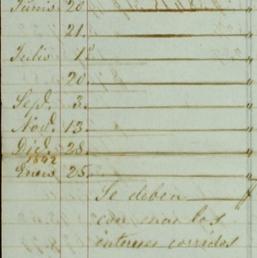 Junio 20.
21.
Julio 1º
20
Sepe. 3.
Nove. 13.
Dice. 28.
1842
Enero 25.
Se deben
con mas los
intereses corridos